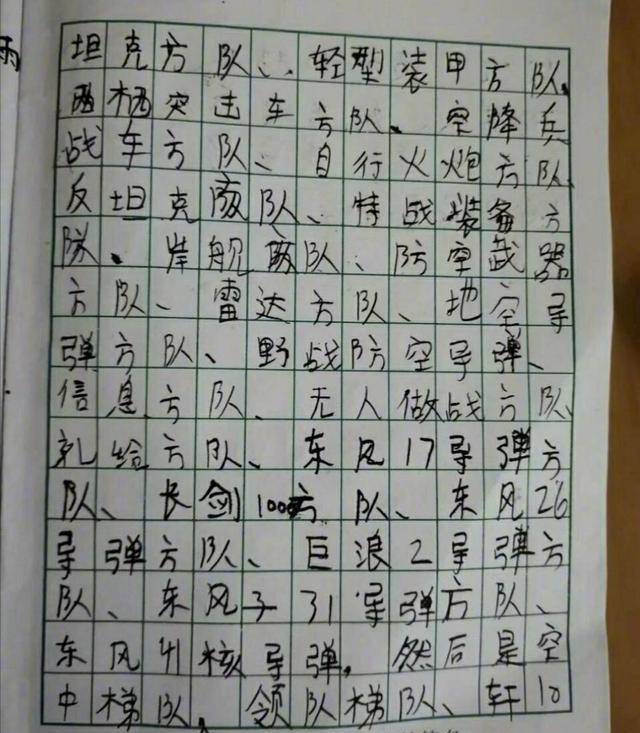 坦克方队、轻型装甲方队、
两栖突击车方队、空降兵
战车方队、自行火炮方队、
反坦克方队、特战装备方
队、岸舰方队、防空武器
方队、雷达方队、地空导
弹方队、野战防空导弹、
信息方队、无人做战方队、
补给方队、东风17导弹方
队、长剑100方队、东风26
导弹方队、巨浪2导弹方
队、东风子31导弹方队、
东风41核导弹。然后是空
中梯队。领队梯队、轩10